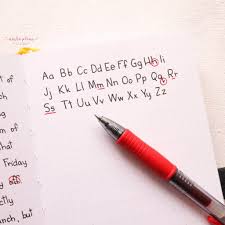 Aa Bb Cc Dd Ee Ff Gg Hh Ii
Jj Kk Ll Mm Nn Oo Pp Qq Rr
Ss Tt Uu Vv Ww Xx Yy Zz
of
n of
that
Friday
off
ctly
nch, but